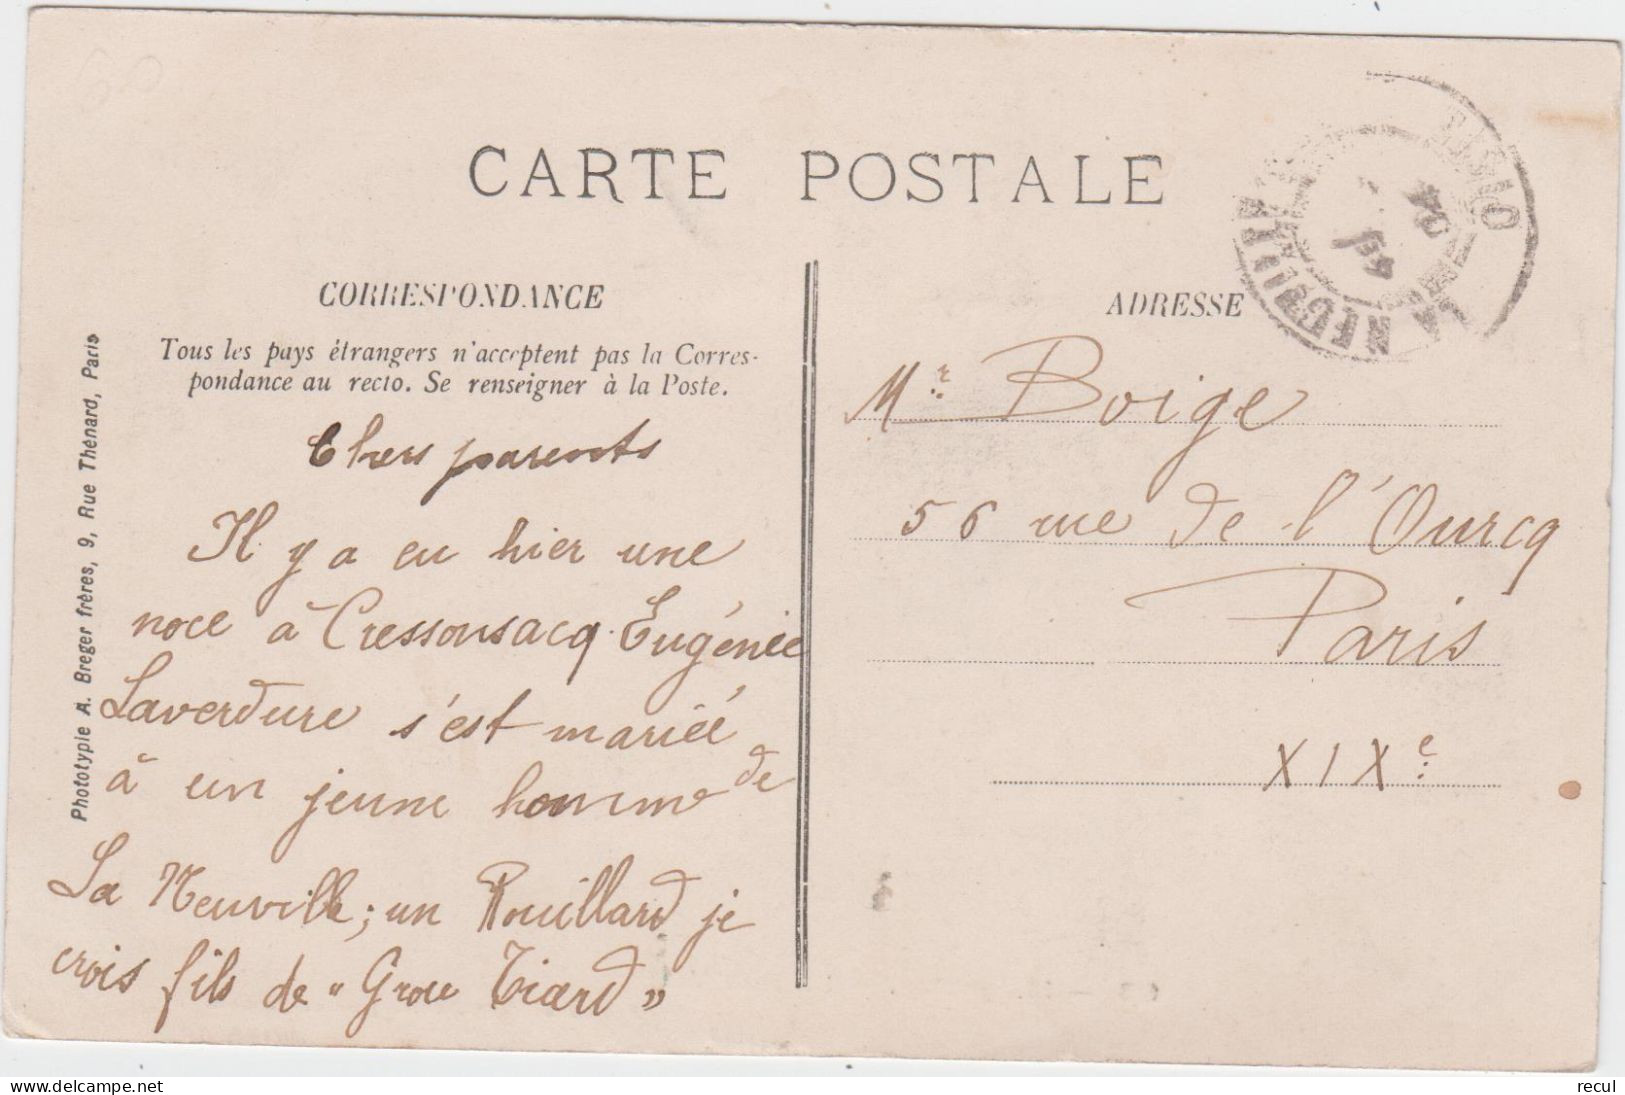 CARTE POSTALE
CORRESPONDANCE
Tous les pays étrangers n'acceptent pas la Corres-
pondance au recto. Se renseigner à la Poste.
Chers parents
Il y a eu hier une
noce à Cressonsacq. Eugénie
Laverdure s'est mariée
à un jeune homme de
La Neuville; un Rouillard je
crois fils de "
Phototypie A. Breger frères, 9, Rue Thénard, Paris
ADRESSE
Mr Boige
56 rue de l'Ourcq
Paris
XIXe
OISE
04
delcampe.net
recul